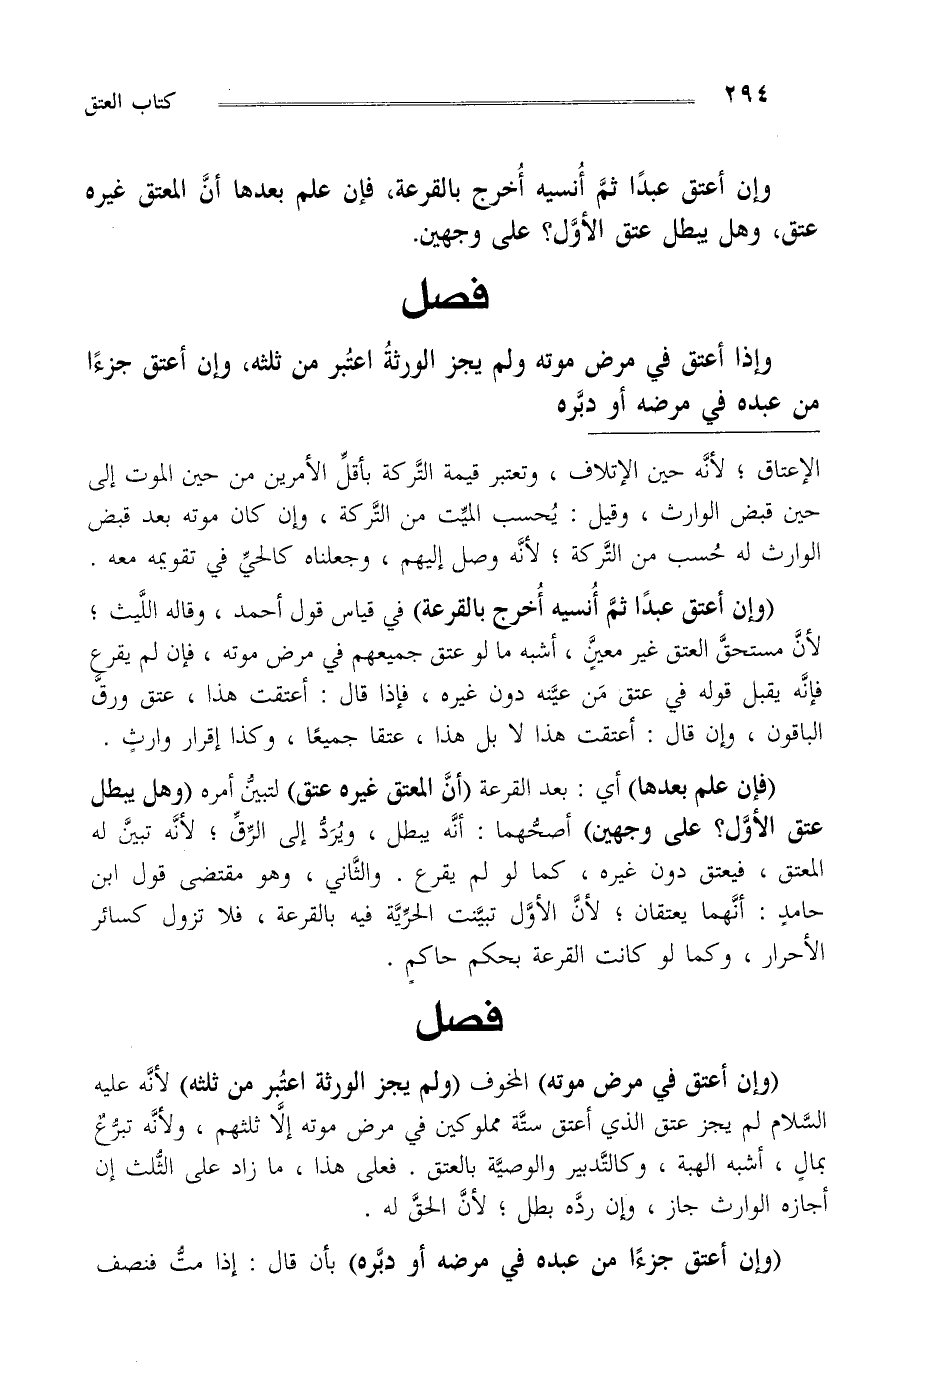 ٢٩٤ كتاب العتق
وإن أعتق عبدًا ثمَّ أُنسيه أُخرج بالقرعة، فإن علم بعدها أنَّ المعتق غيره
عتق، وهل يبطل عتق الأوَّل؟ على وجهين.
فصل
وإذا أعتق في مرض موته ولم يجز الورثةُ اعتُبر من ثلثه، وإن أعتق جزءًا
من عبده في مرضه أو دبَّره
الإعتاق ؛ لأنَّه حين الإتلاف ، وتعتبر قيمة التَّركة بأقلِّ الأمرين من حين الموت إلى
حين قبض الوارث ، وقيل : يُحسب الميِّت من التَّركة ، وإن كان موته بعد قبض
الوارث له حُسب من التَّركة ؛ لأنَّه وصل إليهم ، وجعلناه كالحيِّ في تقويمه معه .
(وإن أعتق عبدًا ثمَّ أُنسيه أُخرج بالقرعة) في قياس قول أحمد ، وقاله اللَّيث ؛
لأنَّ مستحقَّ العتق غير معينَّ ، أشبه ما لو عتق جميعهم في مرض موته ، فإن لم يقرع
فإنَّه يقبل قوله في عتق مَن عيَّنه دون غيره ، فإذا قال : أعتقت هذا ، عتق ورقَّ
الباقون ، وإن قال : أعتقت هذا لا بل هذا ، عتقا جميعًا ، وكذا إقرار وارثٍ .
(فإن علم بعدها) أي : بعد القرعة (أنَّ المعتق غيره عتق) لتبينُّ أمره (وهل يبطل
عتق الأوَّل؟ على وجهين) أصحُّهما : أنَّه يبطل ، ويُرَدُّ إلى الرِّقِّ ؛ لأنَّه تبينَّ له
المعتق ، فيعتق دون غيره ، كما لو لم يقرع . والثَّاني ، وهو مقتضى قول ابن
حامدٍ : أنَّهما يعتقان ؛ لأنَّ الأوَّل تبيَّنت الحرِّيَّة فيه بالقرعة ، فلا تزول كسائر
الأحرار ، وكما لو كانت القرعة بحكم حاكمٍ .
فصل
(وإن أعتق في مرض موته) المخوف (ولم يجز الورثة اعتُبر من ثلثه) لأنَّه عليه
السَّلام لم يجز عتق الذي أعتق ستَّة مملوكين في مرض موته إلَّا ثلثهم ، ولأنَّه تبرُّعٌ
بمالٍ ، أشبه الهبة ، وكالتَّدبير والوصيَّة بالعتق . فعلى هذا ، ما زاد على الثُّلث إن
أجازه الوارث جاز ، وإن ردَّه بطل ؛ لأنَّ الحقَّ له .
(وإن أعتق جزءًا من عبده في مرضه أو دبَّره) بأن قال : إذا متُّ فنصف